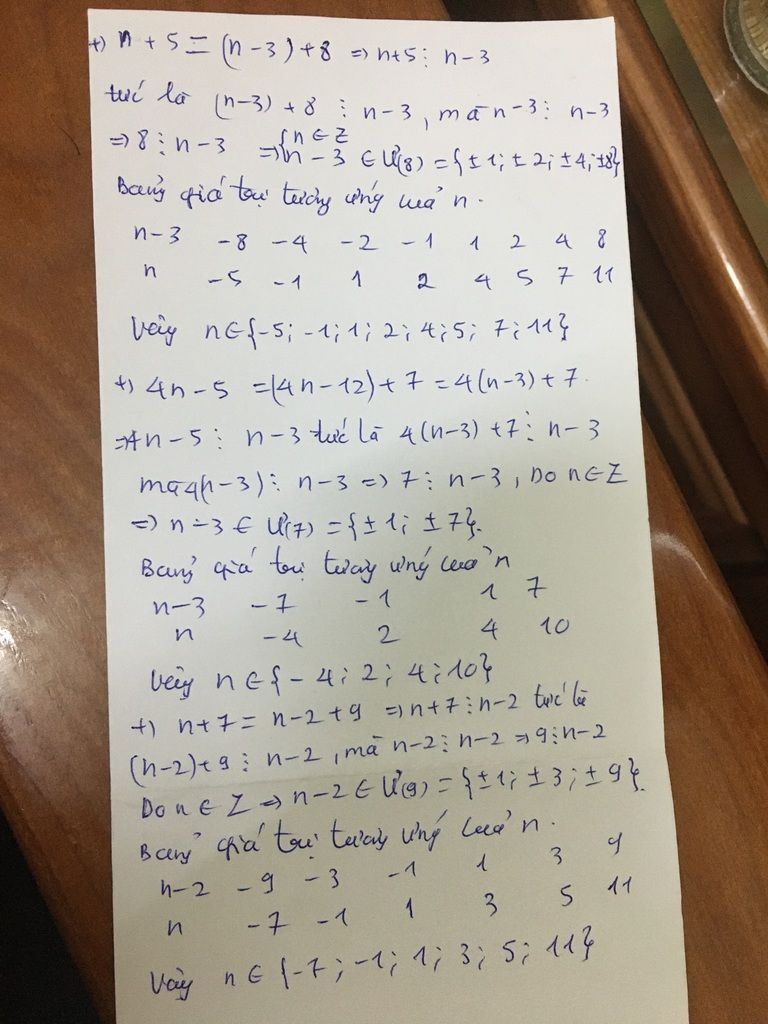 +) n + 5 = (n-3) + 8 => n+5 ⋮ n-3
tức là (n-3) + 8 ⋮ n-3, mà n-3 ⋮ n-3
=> 8 ⋮ n-3 => { n ∈ Z
n-3 ∈ Ư(8) = {±1; ±2; ±4; ±8}
Bảng giá trị tương ứng của n.
n-3 -8 -4 -2 -1 1 2 4 8
n -5 -1 1 2 4 5 7 11
Vậy n ∈ {-5; -1; 1; 2; 4; 5; 7; 11}
+) 4n-5 = (4n-12) + 7 = 4(n-3) + 7.
=> 4n-5 ⋮ n-3 tức là 4(n-3) + 7 ⋮ n-3
mà 4(n-3) ⋮ n-3 => 7 ⋮ n-3, Do n ∈ Z
=> n-3 ∈ Ư(7) = {±1; ±7}.
Bảng giá trị tương ứng của n
n-3 -7 -1 1 7
n -4 2 4 10
Vậy n ∈ {-4; 2; 4; 10}
+) n+7 = n-2+9 => n+7 ⋮ n-2 tức là
(n-2)+9 ⋮ n-2, mà n-2 ⋮ n-2 => 9 ⋮ n-2
Do n ∈ Z => n-2 ∈ Ư(9) = {±1; ±3; ±9}.
Bảng giá trị tương ứng của n.
n-2 -9 -3 -1 1 3 9
n -7 -1 1 3 5 11
Vậy n ∈ {-7; -1; 1; 3; 5; 11}